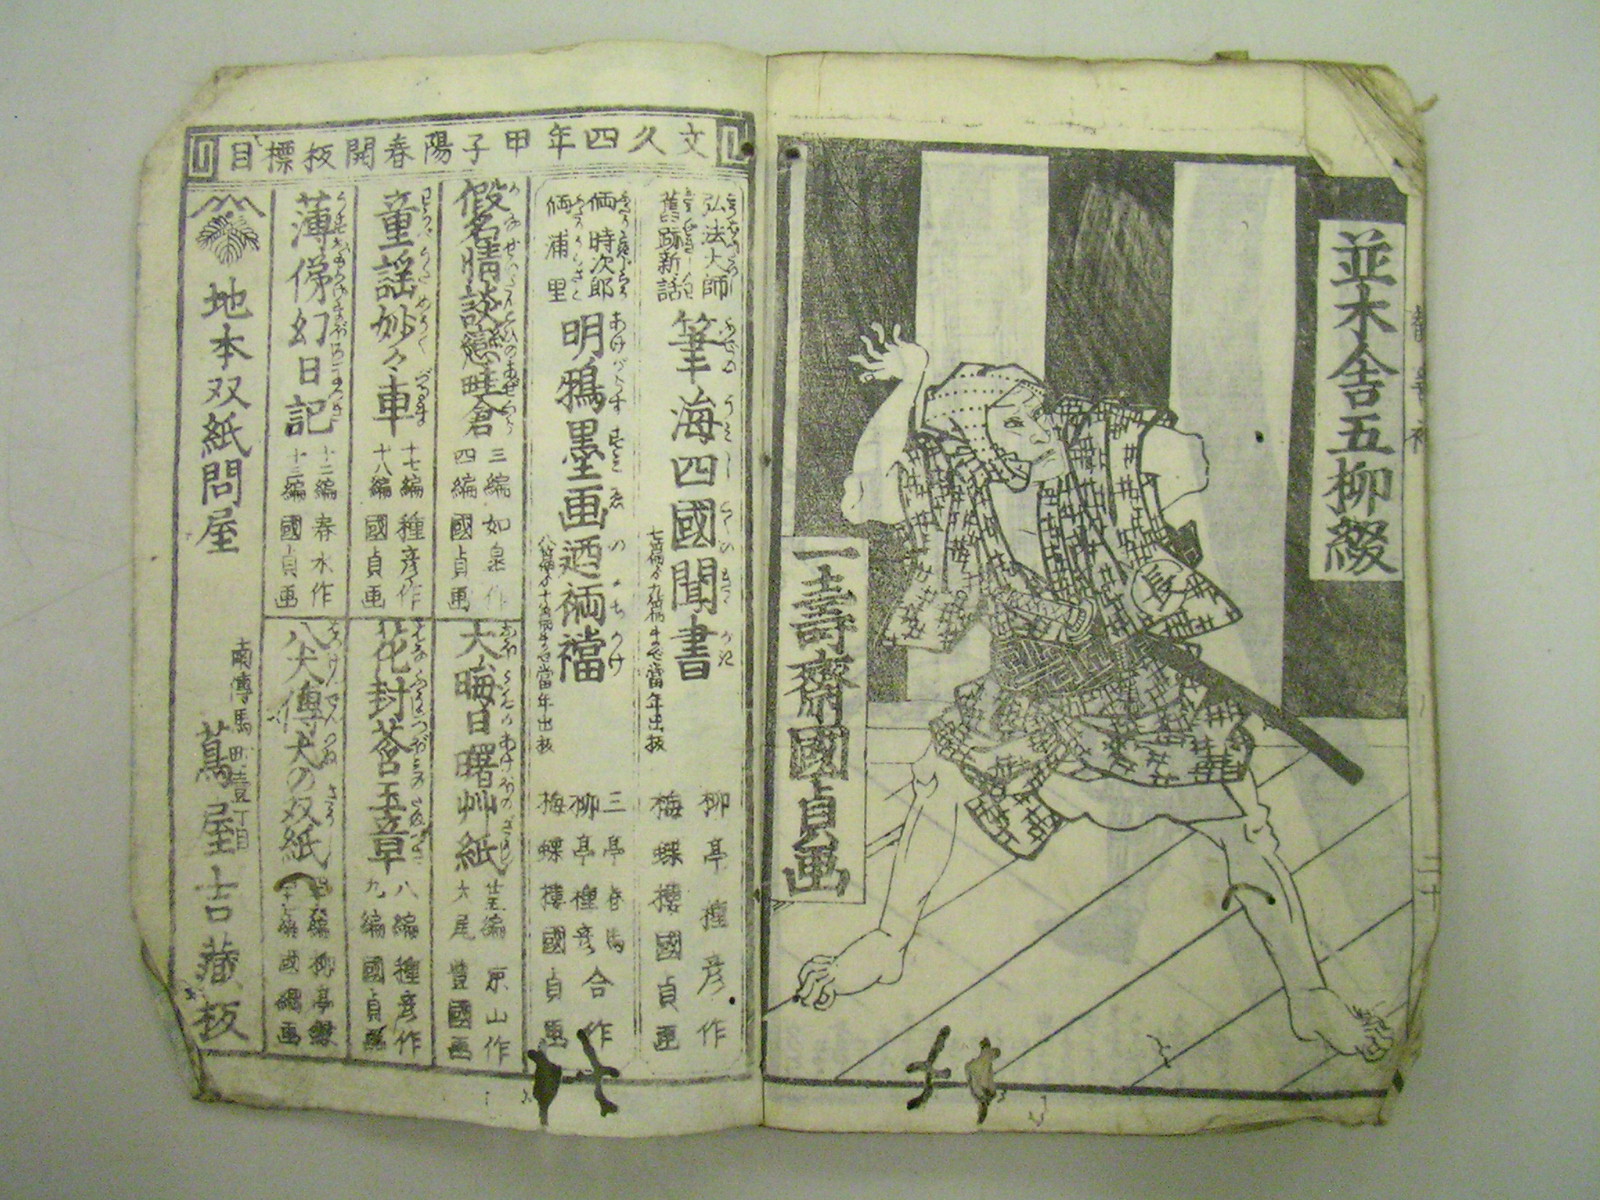 並木舎五柳綴
一壽齋國貞画
文久四年甲子陽春開板標目
弘法大師
舊跡新話
筆海四國聞書
七編より九編まで當年出板
柳亭種彦作
梅蝶樓國貞画
時次郎
浦里
明鴉墨画廼裲襠
八編より十編まで當年出板
三亭春馬
柳亭種彦
合作
梅蝶樓國貞画
假名情談戀畦倉
三編
四編
如皐作
國貞画
大晦日曙艸紙
廿五編
大尾
京山作
豊國画
童謡妙々車
十七編
十八編
種彦作
國貞画
花封莟玉章
八編
九編
種彦作
國貞画
薄俤幻日記
十二編
十三編
春水作
國貞画
八犬傳犬の双紙
地本双紙問屋
南傳馬町壹丁目
蔦屋吉藏板